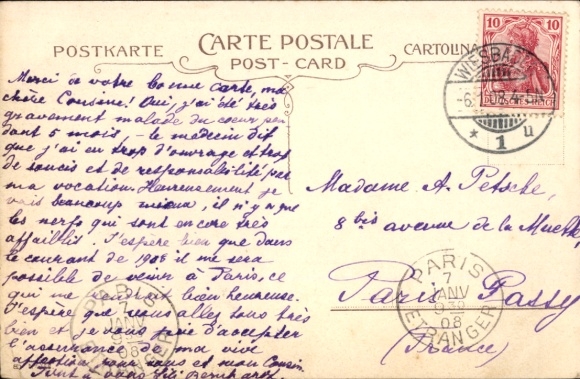 CARTE POSTALE
POSTKARTE
CARTOLINA
POST-CARD
10 10
WIESBADEN
-6.1.08.4-5N
* 1 u
Merci de votre bonne carte, ma
chère Cousine! Oui, j'ai été très
gravement malade du coeur pen
dant 5 mois, - le medecin dit
que j'ai eu trop d'ouvrage et trop
de soucis et de responsabilité par
ma vocation. Heureusement je
vais beaucoup mieux, il n'y a que
les nerfs qui sont encore très
affaiblis. J'espère bien que dans
le courant de 1908 il me sera
possible de venir à Paris, ce
qui me rendrait bien heureuse.
J'espère que vous allez tous très
bien et je vous prie d'accepter
l'assurance de ma vive
affection pour vous et mon Cousin.
à vous
Madame A. Petsche,
8 bis avenue de la Muette
Paris Passy
(France)
PARIS
7
JANV
9 30
08
ETRANGER
PARIS
08
ETRANGER